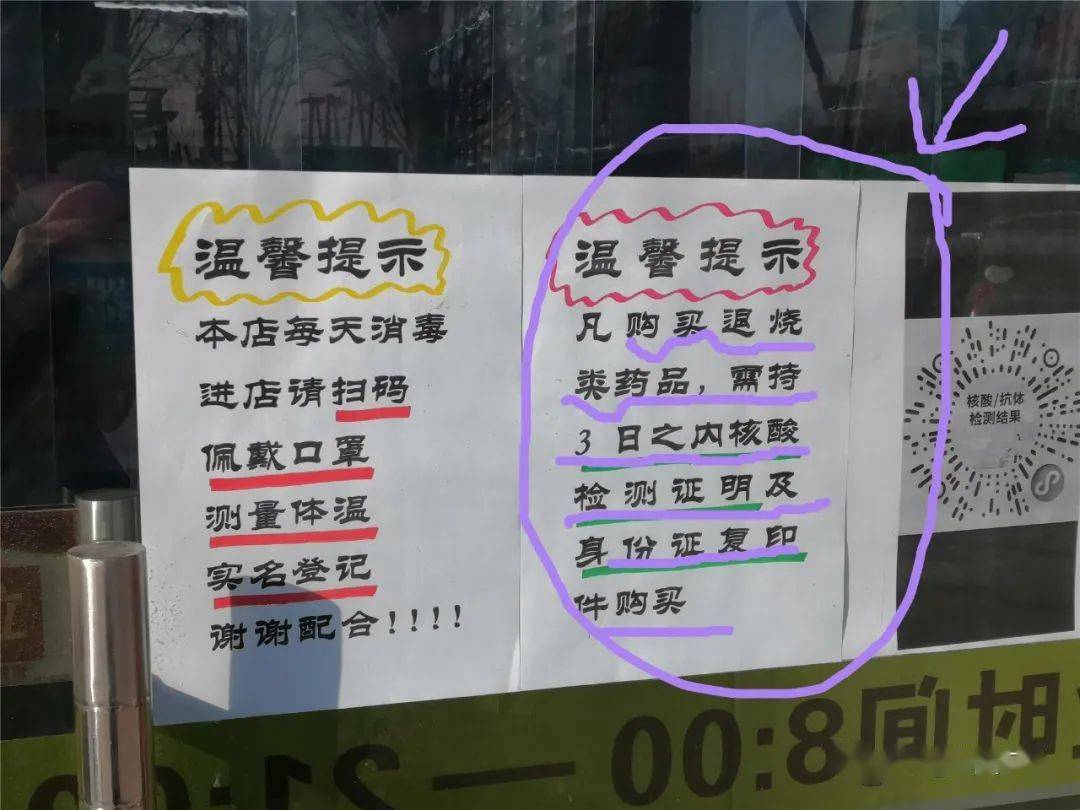 温馨提示
本店每天消毒
进店请扫码
佩戴口罩
测量体温
实名登记
谢谢配合!!!!
温馨提示
凡购买退烧
类药品，需持
3日之内核酸
检测证明及
身份证复印
件购买
核酸/抗体
检测结果
时间8:00—21:0